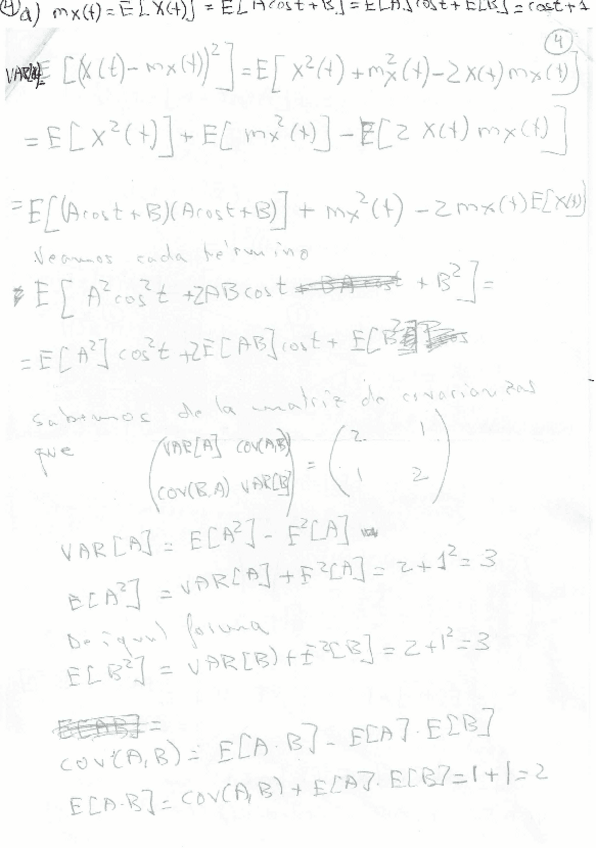 ④ a) mx(t) = E[X(t)] = E[A cost + B] = E[A] cost + E[B] = cost + 1
④
VAR(X)= E[(X(t) - mx(t))²] = E[X²(t) + mx²(t) - 2X(t) mx(t)]
= E[X²(t)] + E[mx²(t)] - E[2 X(t) mx(t)]
= E[(A cost + B)(A cost + B)] + mx²(t) - 2 mx(t) E[X(t)]
Veamos cada término
E[A² cos²t + 2AB cost + B²] =
= E[A²] cos²t + 2E[AB] cost + E[B²]
sabemos de la matriz de covarianzas
que
(VAR[A] COV(A,B)) = (2 1)
(COV(B,A) VAR[B]) (1 2)
VAR[A] = E[A²] - E²[A]
E[A²] = VAR[A] + E²[A] = 2 + 1² = 3
De igual forma
E[B²] = VAR(B) + E²[B] = 2 + 1² = 3
E[AB] =
COV(A,B) = E[A·B] - E[A]·E[B]
E[A·B] = COV(A,B) + E[A]·E[B] = 1 + 1 = 2